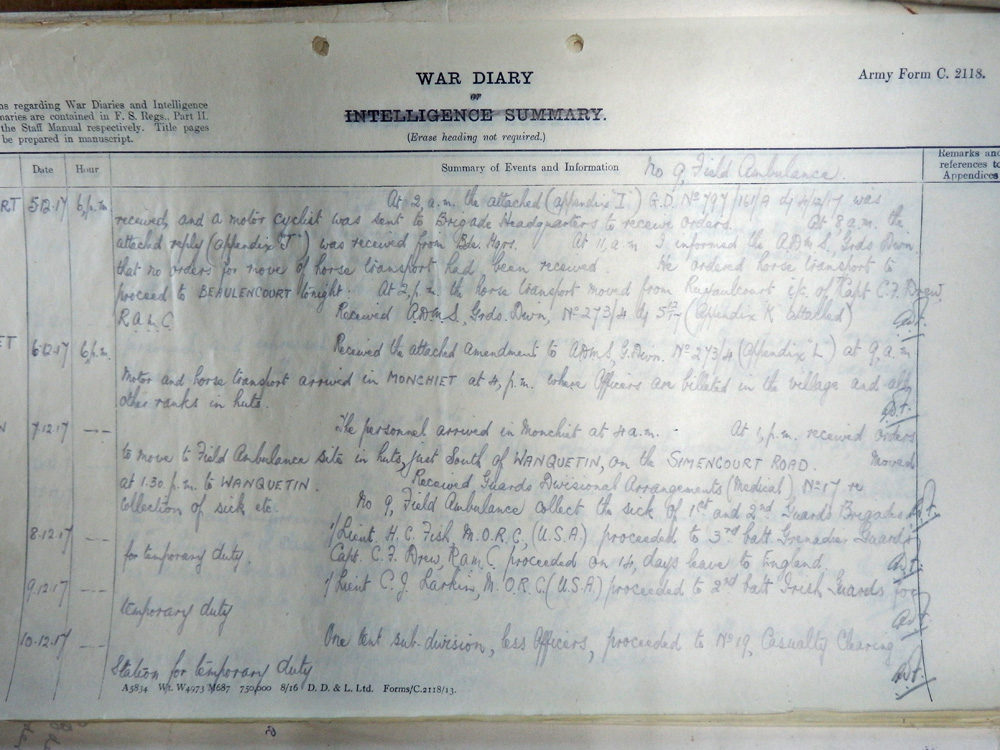 WAR DIARY
or
INTELLIGENCE SUMMARY.
(Erase heading not required.)
Army Form C. 2118.
ns regarding War Diaries and Intelligence
maries are contained in F. S. Regs., Part II.
the Staff Manual respectively. Title pages
be prepared in manuscript.
Date Hour Summary of Events and Information No 9, Field Ambulance. Remarks and
references to
Appendices
RT 5.12.17 6,p.m. At 2, a.m. the attached (appendix I) G.D. No 797/161/A d/ 4/12/17 was
received, and a motor cyclist was sent to Brigade Headquarters to receive orders. At 8, a.m. the
attached reply (appendix J) was received from Bde. Hqrs. At 11, a.m I informed the A.D.M.S, Grds Divn
that no orders for move of horse transport had been received. He ordered horse transport to
proceed to BEAULENCOURT tonight. At 2, p.m. the horse transport moved from i/c. of Capt C.F. Drew,
R.A.M.C. Received A.D.M.S, Grds. Divn, No 273/4 d/ (Appendix K attached)
ET 6.12.17 6,p.m. Received the attached amendment to ADMS, G.Divn. No 273/4 (appendix L) at 9, a.m
Motor and horse transport arrived in MONCHIET at 4, p.m. where Officers are billeted in the village and all
other ranks in huts.
N 7.12.17 --- The personnel arrived in Monchiet at 4 a.m. - At 1, p.m. received orders
to move to Field Ambulance site in huts, just South of WANQUETIN, on the SIMENCOURT ROAD. Moved
at 1.30. p.m. to WANQUETIN. Received Guards Divisional Arrangements (Medical) No 17 re
collection of sick etc. No 9, Field Ambulance collect the sick of 1st and 2nd Guards Brigades
8.12.17 --- 1/Lieut. H. C. Fish, M.O.R.C, (U.S.A) proceeded to 3rd batt Grenadier Guards
for temporary duty. Capt. C. F. Drew, R.a.m.C. proceeded on 14, days leave to England.
9.12.17 --- 1/Lieut C. J. Larkin, M.O.R.C. (U.S.A) proceeded to 2nd batt Irish Guards for
temporary duty
10.12.17 --- One tent sub-division, less Officers, proceeded to No 19, Casualty Clearing
Station for temporary duty
A5834 Wt. W4973 M687 750,000 8/16 D. D. & L. Ltd. Forms/C.2118/13.